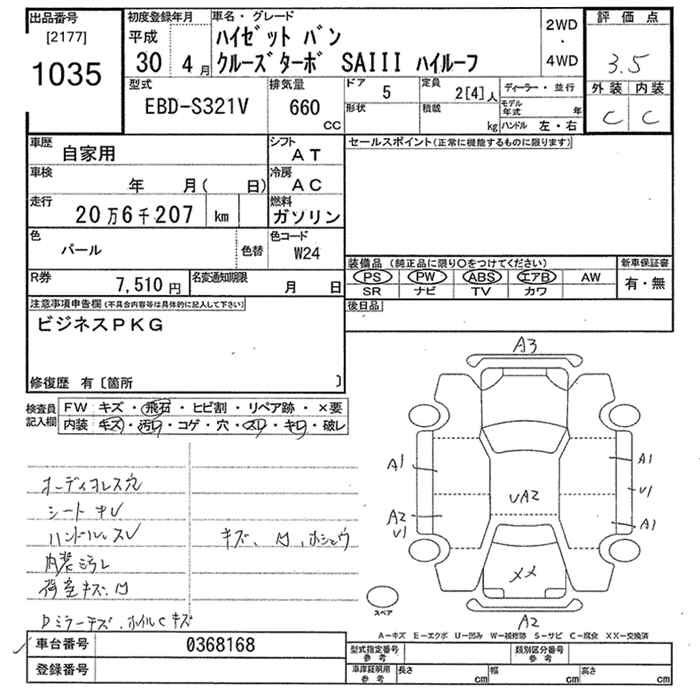 出品番号
[2177]
1035
初度登録年月
平成
30 4月
車名・グレード
ハイゼット バン
クルーズターボ SAIII ハイルーフ
2WD
・
4WD
評価点
3.5
外装 内装
C C
型式
EBD-S321V
排気量
660
CC
ドア
5
定員
2[4]人
形状
積載
kg
ディーラー・並行
モデル年式 年
ハンドル 左・右
車歴
自家用
シフト
AT
車検
年 月( 日)
冷房
AC
走行
20万6千207 km
燃料
ガソリン
色
パール
色替
色コード
W24
R券
7,510円
名変通知期限
月 日
セールスポイント(正常に機能するものに限ります)
装備品(純正品に限り〇をつけてください)
PS PW ABS エアB AW
SR ナビ TV カワ
新車保証書
有・無
後日品
注意事項申告欄(不具合内容等は具体的に記入して下さい)
ビジネスPKG
修復歴 有〔箇所 〕
検査員
記入欄
FW キズ・飛石・ヒビ割・リペア跡・×要
内装 キズ・汚れ・コゲ・穴・スレ・キレ・破レ
オーディオレス穴
シート キレ
ハンドル スレ
内装汚レ
荷室キズ、凹
Dミラーキズ、ホイルCキズ
キズ、凹、ホシュウ
A3
A1
A2
U1
UA2
A1
U1
A1
メメ
A2
スペア
A-キズ E-エクボ U-凹み W-補修跡 S-サビ C-腐食 XX-交換済
車台番号
0368168
登録番号
型式指定番号
参考
類別区分番号
参考
車庫証明用
参考
長さ cm
幅 cm
高さ cm